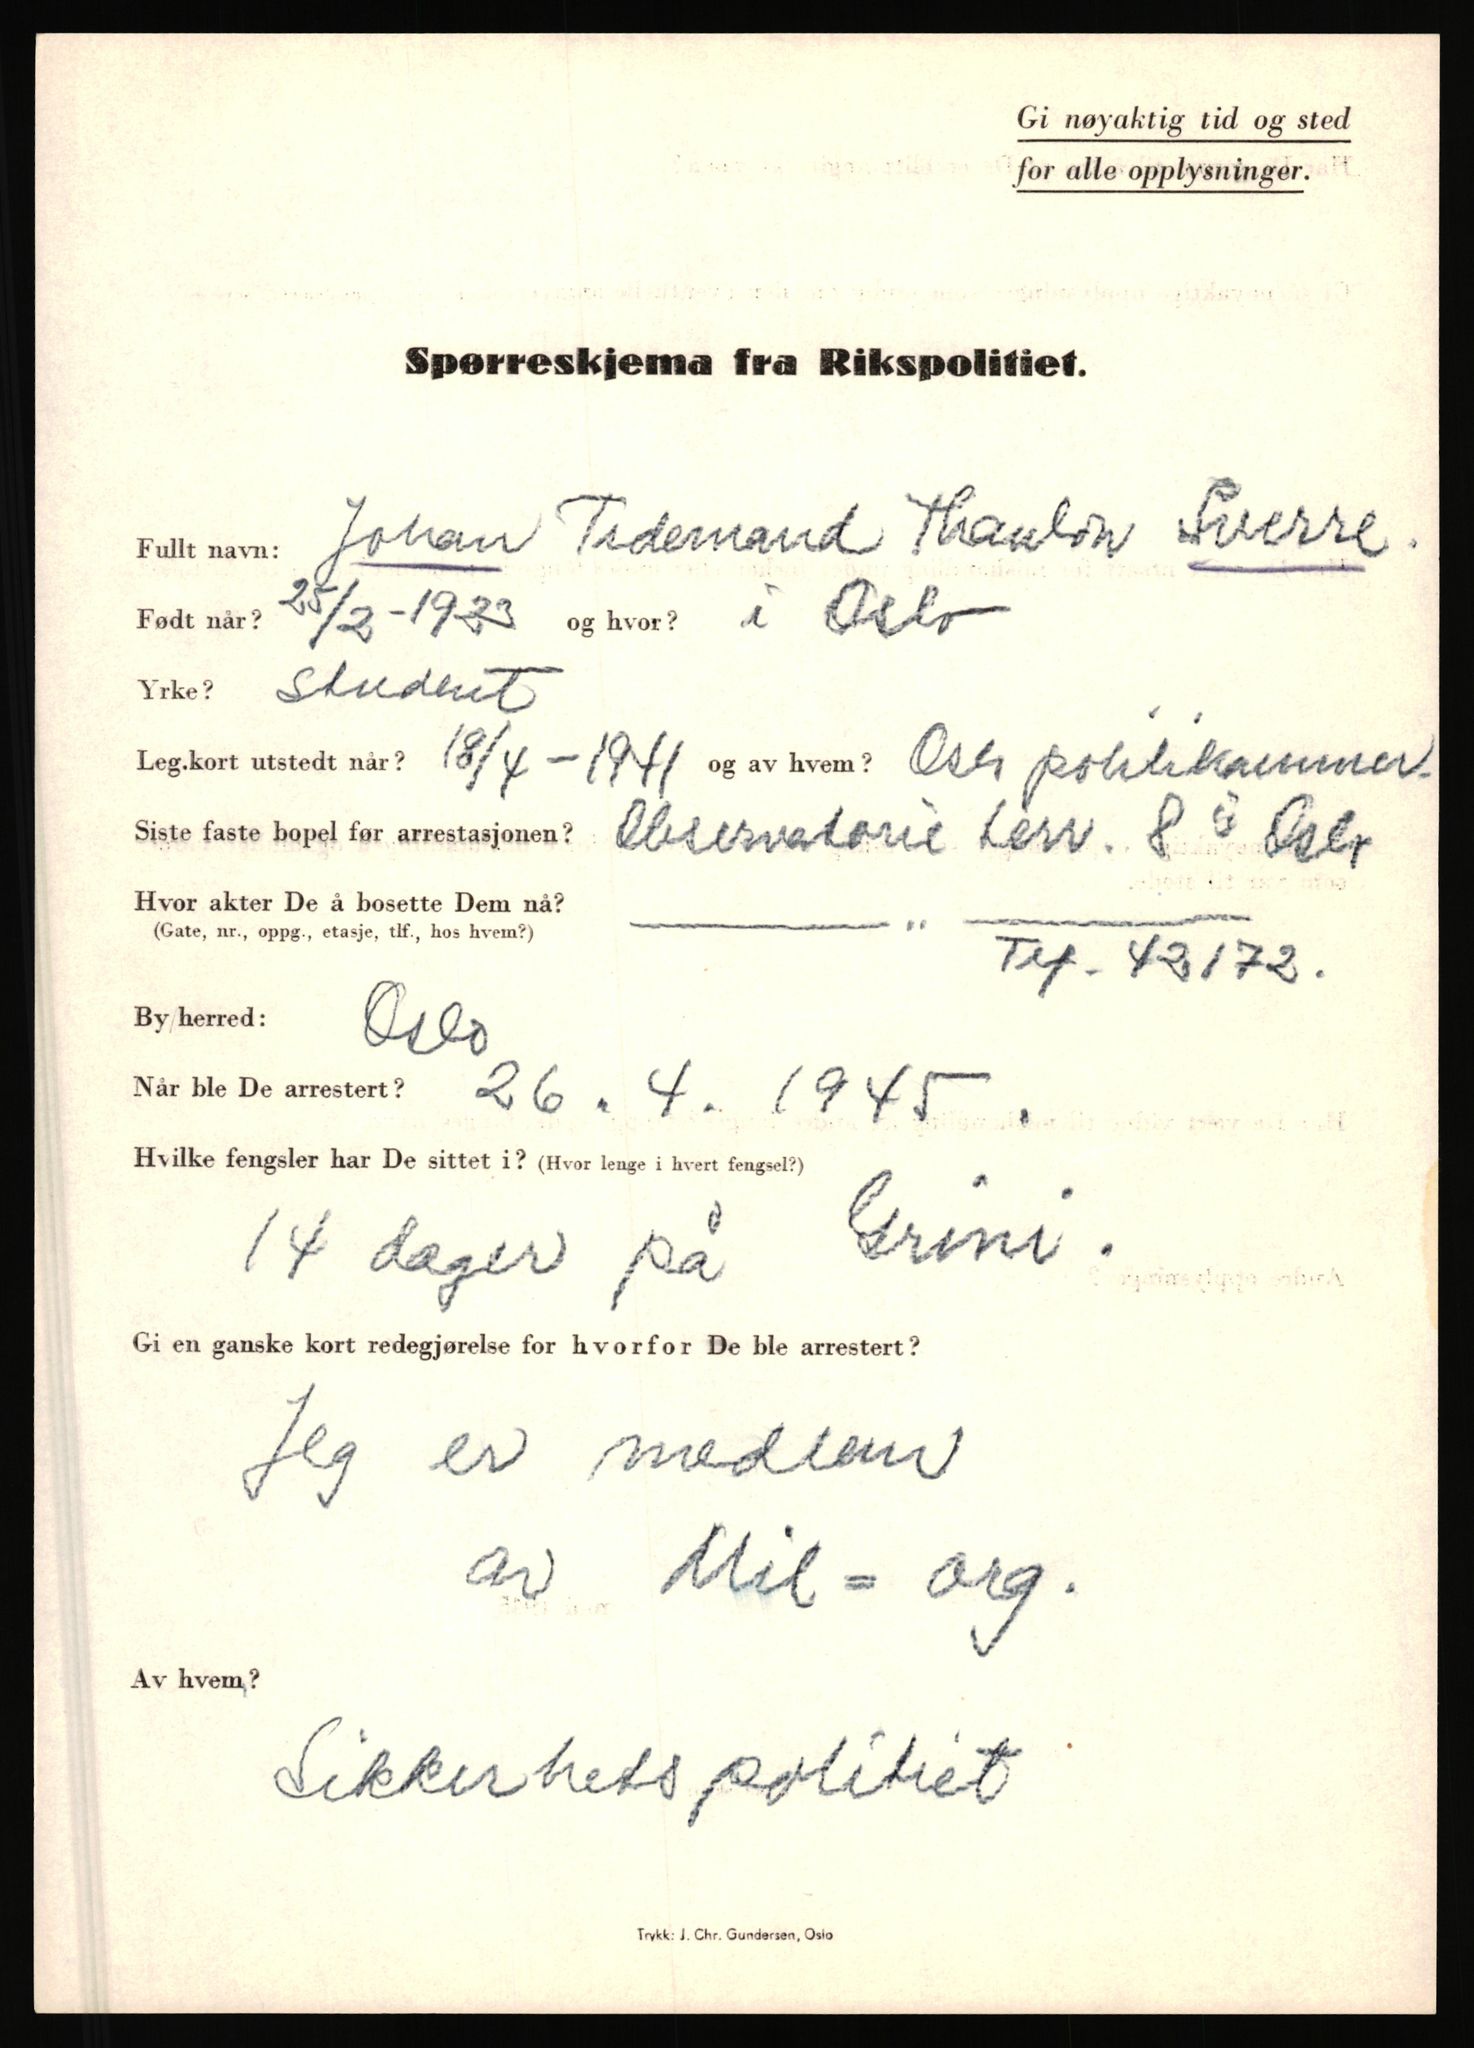 Gi nøyaktig tid og sted
for alle opplysninger.
Spørreskjema fra Rikspolitiet.
Fullt navn: Johan Tidemand Thaulow Sverre.
Født når? 25/2-1923 og hvor? i Oslo
Yrke? student
Leg.kort utstedt når? 18/4-1941 og av hvem? Oslo politikammer.
Siste faste bopel før arrestasjonen? Observatorie terr. 8 Oslo
Hvor akter De å bosette Dem nå? — " —
(Gate, nr., oppg., etasje, tlf., hos hvem?)
Tlf. 42172.
By/herred: Oslo
Når ble De arrestert? 26. 4. 1945.
Hvilke fengsler har De sittet i? (Hvor lenge i hvert fengsel?)
14 dager på Grini.
Gi en ganske kort redegjørelse for hvorfor De ble arrestert?
Jeg er medlem
av Mil=org.
Av hvem?
Sikkerhetspolitiet
Trykk: J. Chr. Gundersen, Oslo